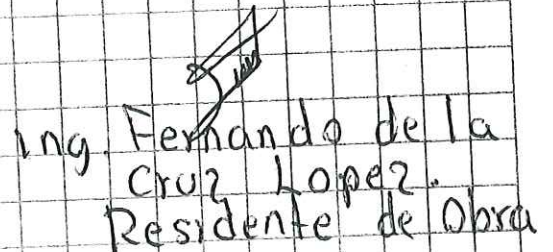 ing. Fernando de la
Cruz Lopez.
Residente de Obra